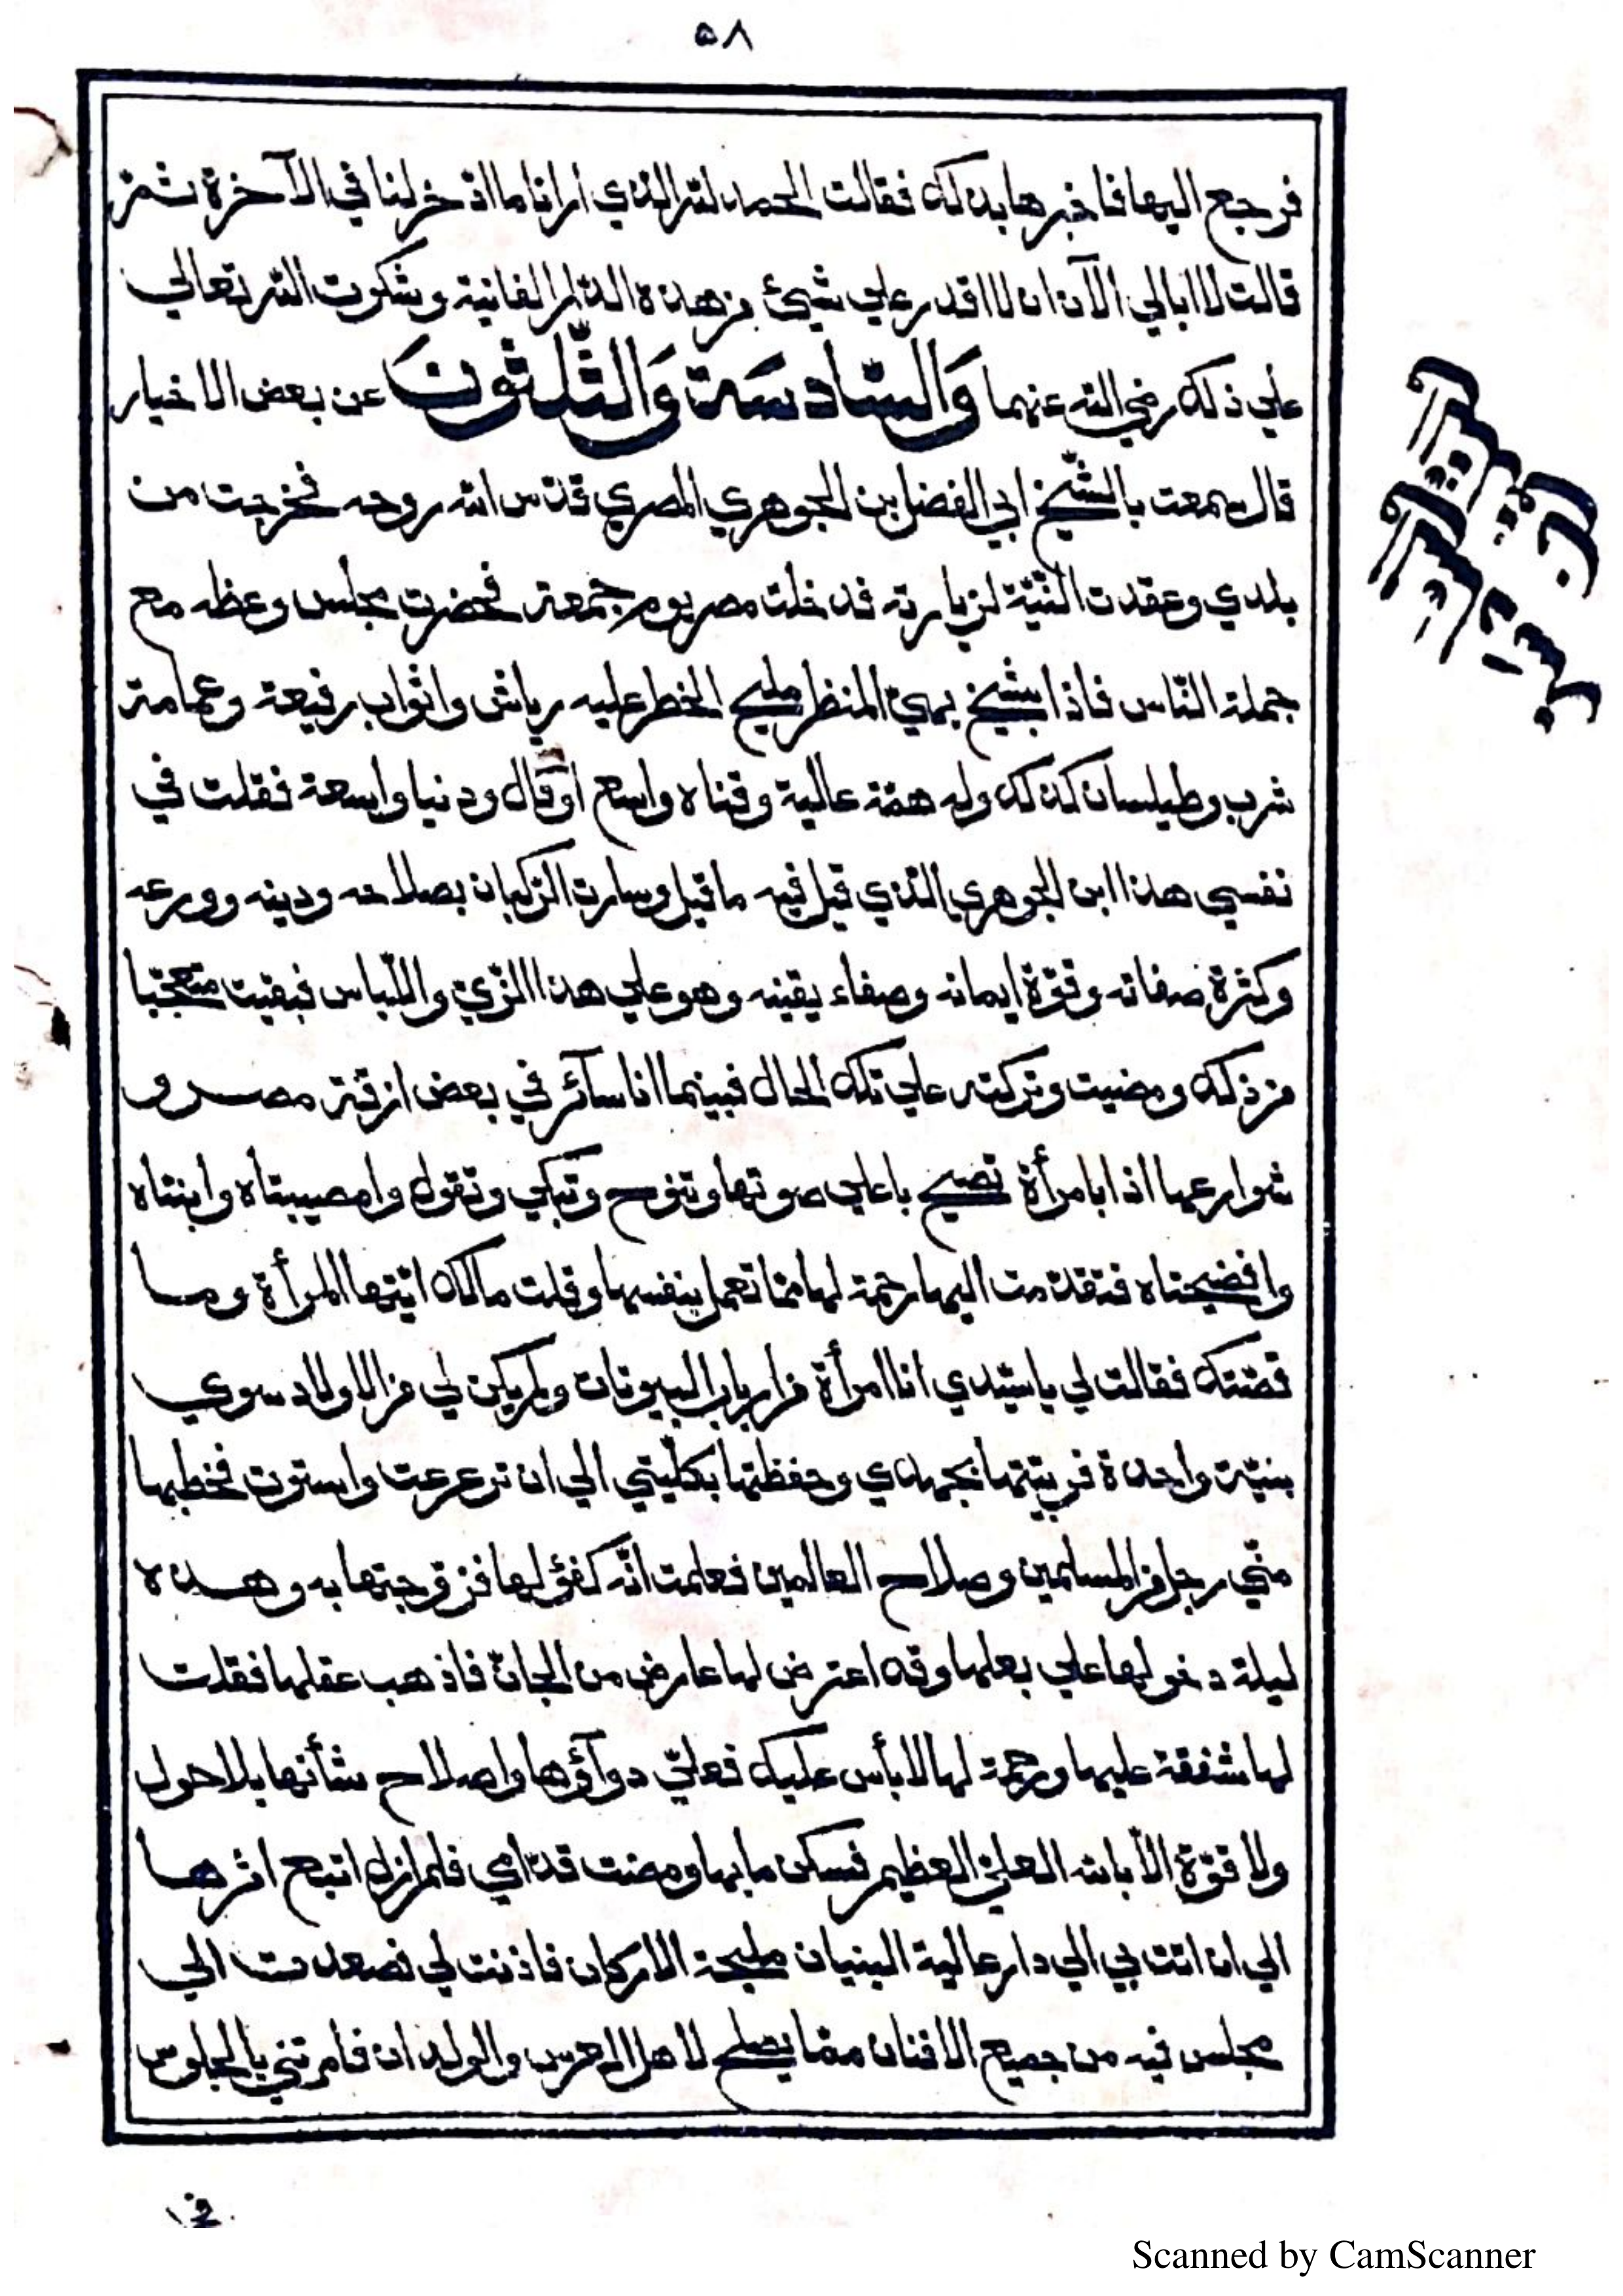 ٥٨
فرجع اليها فاخبرها بذلك فقالت الحمد لله الذي ارانا ما ادّخر لنا في الآخرة ثمّ
قالت لا ابالي الآن ان لا اقدر علي شيئ من هذه الدّار الفانية وشكرت الله تعالي
علي ذلك رضي الله عنهما وَالسّادسَة وَالثّلثونَ عن بعض الاخيار
قال سمعت بالشّيخ ابي الفضل بن الجوهري المصري قدّس الله روحه فخرجت من
بلدي وعقدت النّيّة لزيارته فدخلت مصر يوم جمعة فحضرت مجلس وعظه مع
جملة النّاس فاذا بشيخ بهيّ المنظر مليح الخطر عليه رياش واثواب رفيعة وعمامة
شرب وطيلسان كذلك وله همّة عالية وفناه واسع اوقال ودنيا واسعة فقلت في
نفسي هذا ابن الجوهري الذي قيل فيه ما قيل وسارت الرّكبان بصلاحه ودينه وورعه
وكثرة صفاته وقوّة ايمانه وصفاء يقينه وهو علي هذا الزّيّ واللّباس فبقيت متعجّبا
من ذلك ومضيت وتركته علي تلك الحال فبينما انا سآئر في بعض ازقّة مصر و
شوارعها اذا بامرأة تصيح باعلي صوتها وتنوح وتبكي وتقول وامصيبتاه وابنتاه
وافضيحتاه فتقدّمت اليها رحمة لها ممّا تعمل بنفسها وقلت مالك ايّتها المرأة وما
قصّتك فقالت لي يا سيّدي انا امرأة من ارباب البيوتات ولم يكن لي من الاولاد سوي
بنيّة واحدة فربيّتها بجهدي وحفظتها بكلّيتي الي ان ترعرعت واستوت فخطبها
منّي رجل من المسلمين وصلاح العالمين فعلمت انّه كفؤ لها فزوّجتها به وهذه
ليلة دخولها علي بعلها وقد اعترض لها عارض من الجانّ فاذهب عقلها فقلت
لها شفقة عليها ورحمة لها لا بأس عليك فعليّ دوآؤها واصلاح شأنها بلا حول
ولا قوّة الّا بالله العليّ العظيم فسكن ما بها ومضت قدّامي فلم ازل اتبع اثرها
الي ان اتت بي الي دار عالية البنيان مليحة الاركان فاذنت لي فصعدت الي
مجلس فيه من جميع الافنان ممّا يصلح لاهل العرس والولدان فامرتني بالجلوس